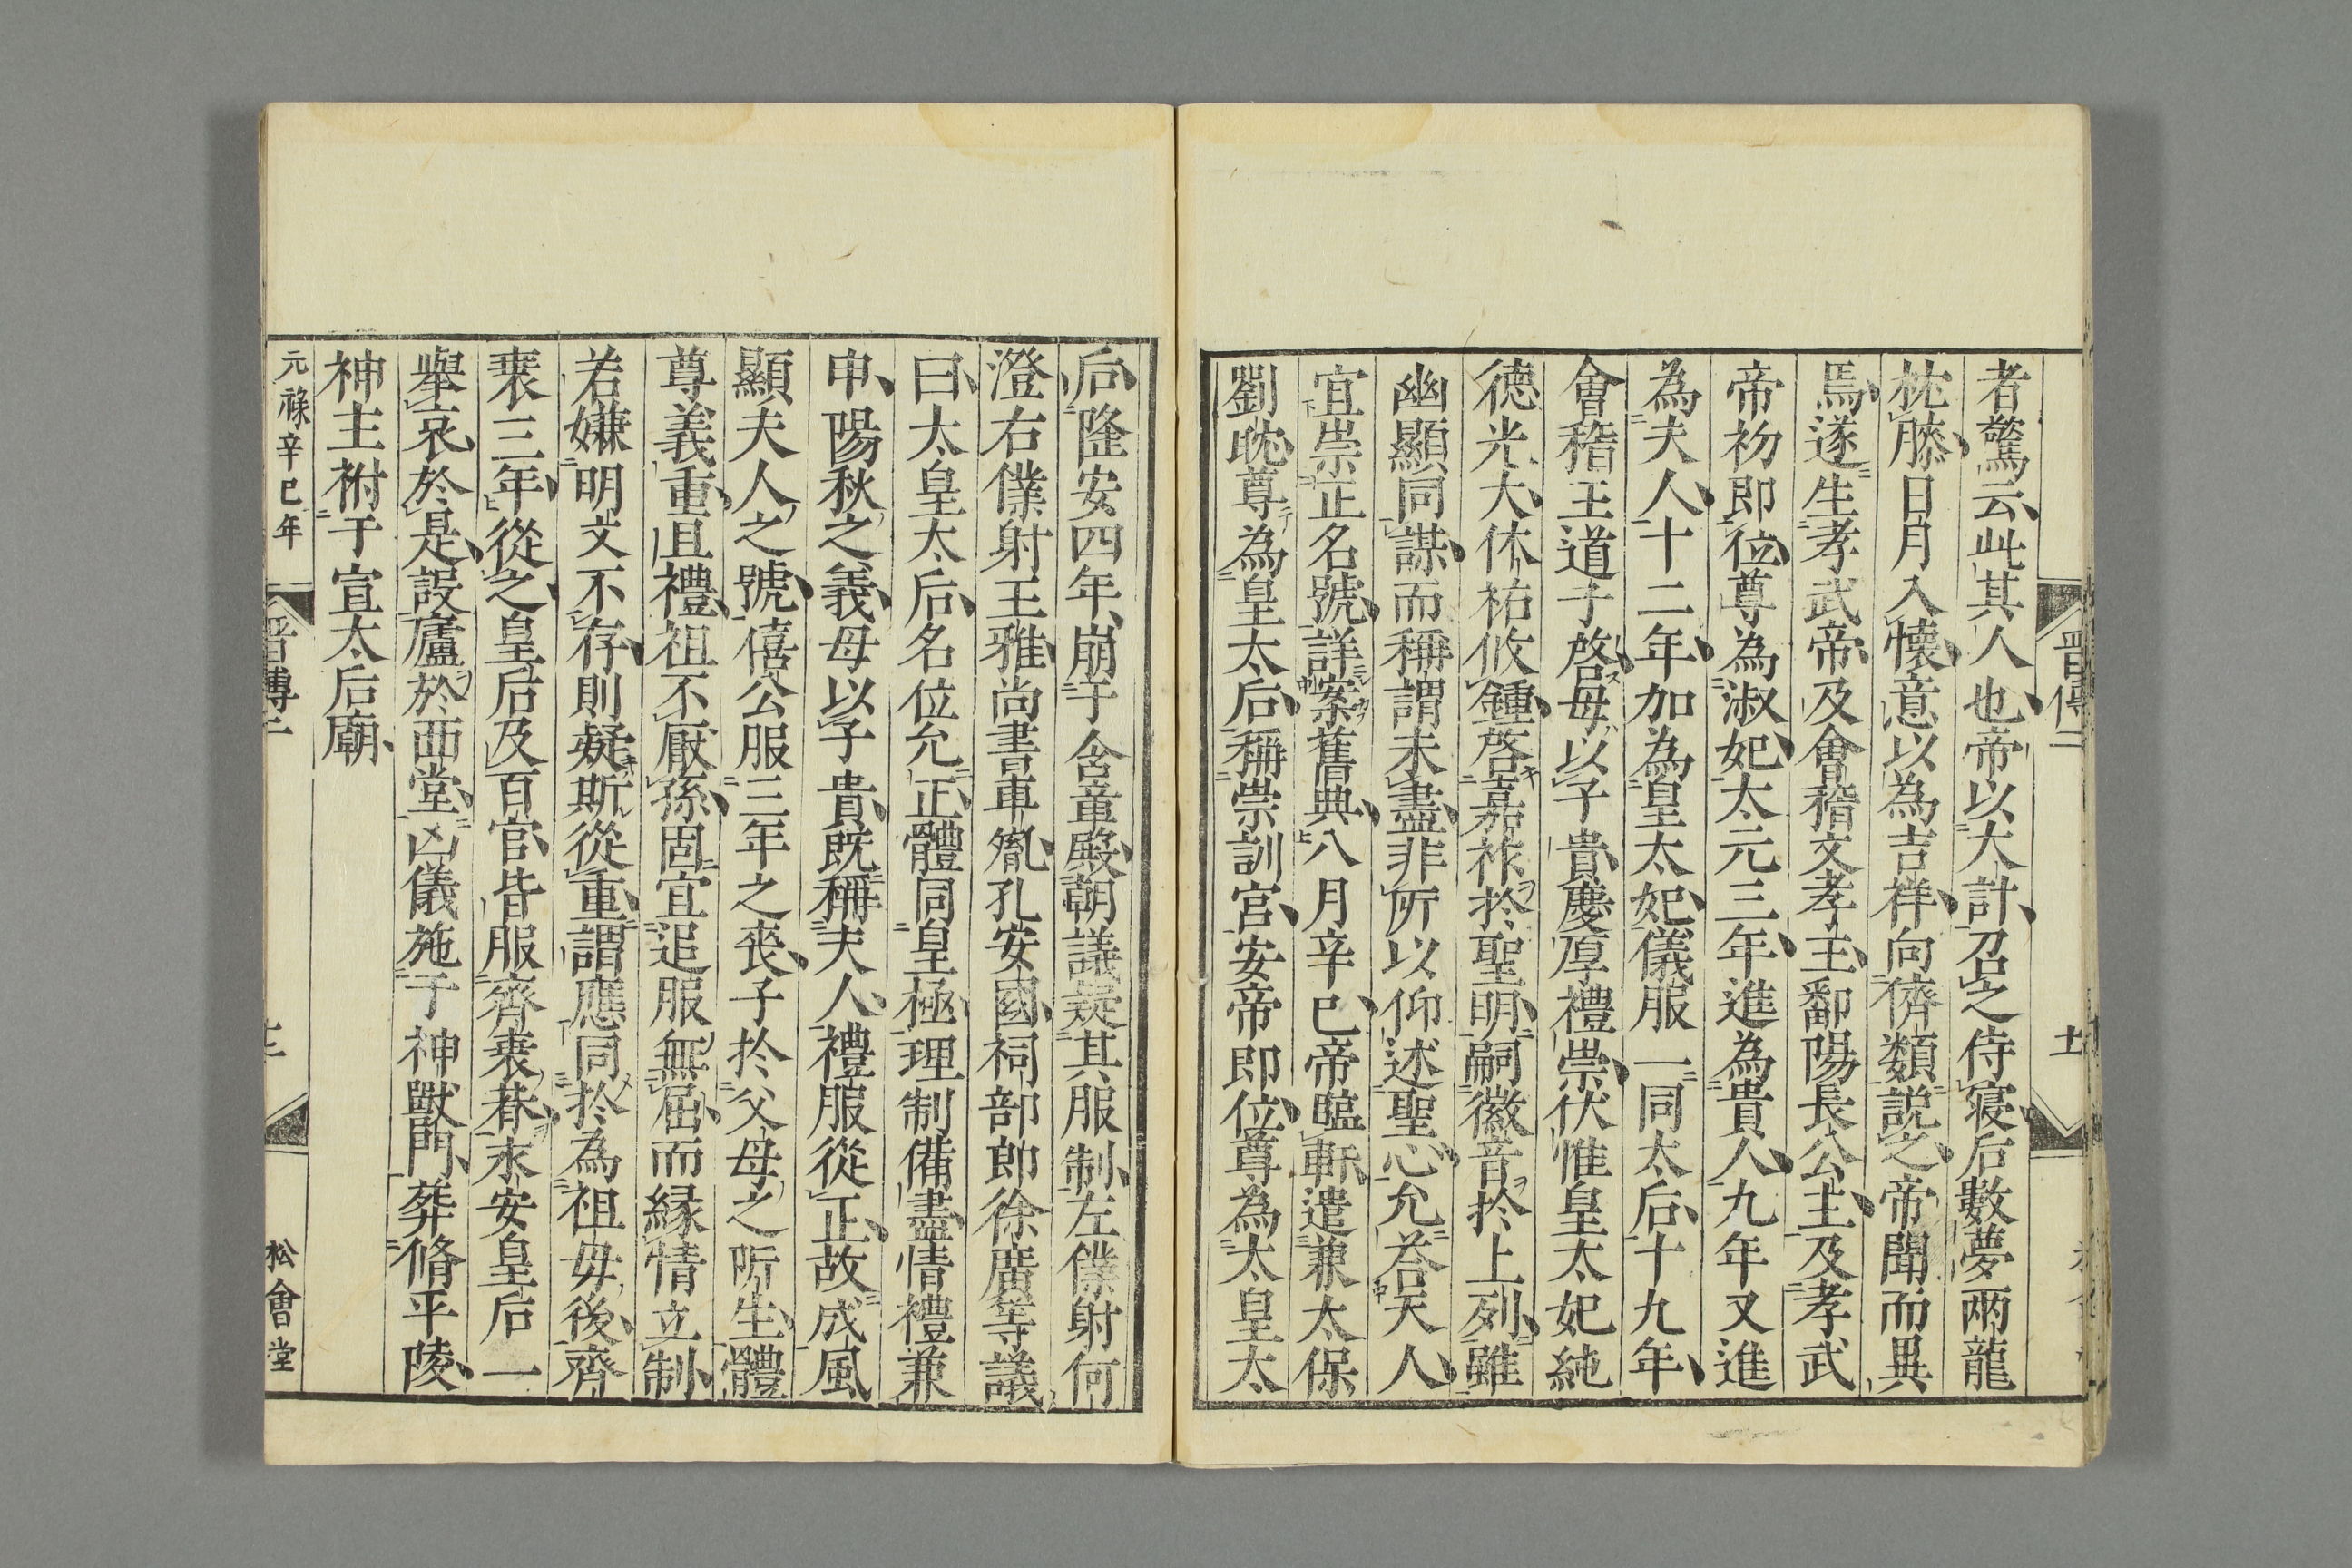 晋傳二
十一
者驚云此其人也帝以大計召之侍寝后數夢兩龍
枕膝日月入懷意以為吉祥向儕類説之帝聞而異
焉遂生孝武帝及會稽文孝王鄱陽長公主及孝武
帝初即位尊為淑妃太元三年進為貴人九年又進
為夫人十二年加為皇太妃儀服一同太后十九年
會稽王道子啓母以子貴慶厚禮崇伏惟皇太妃純
德光大休祐攸鍾啓嘉祚於聖明嗣徽音於上列雖
幽顯同謀而稱謂未盡非所以仰述聖心允荅天人
宜崇正名號詳案舊典八月辛巳帝臨軒遣兼太保
劉耽尊為皇太后稱崇訓宮安帝即位尊為太皇太
后隆安四年崩于含章殿朝議疑其服制左僕射何
澄右僕射王雅尚書車胤孔安國祠部郎徐廣等議
曰太皇太后名位允正體同皇極理制備盡情禮兼
申陽秋之義母以子貴既稱夫人禮服從正故成風
顯夫人之號僖公服三年之喪子於父母之所生體
尊義重且禮祖不厭孫固宜追服無屈而縁情立制
若嫌明文不存則疑斯從重謂應同於為祖母後齊
衰三年從之皇后及百官皆服齊衰朞永安皇后一
舉哀於是設廬於西堂凶儀施于神獸門葬脩平陵
神主祔于宣太后廟
元祿辛巳年
晋傳二
十一
松會堂